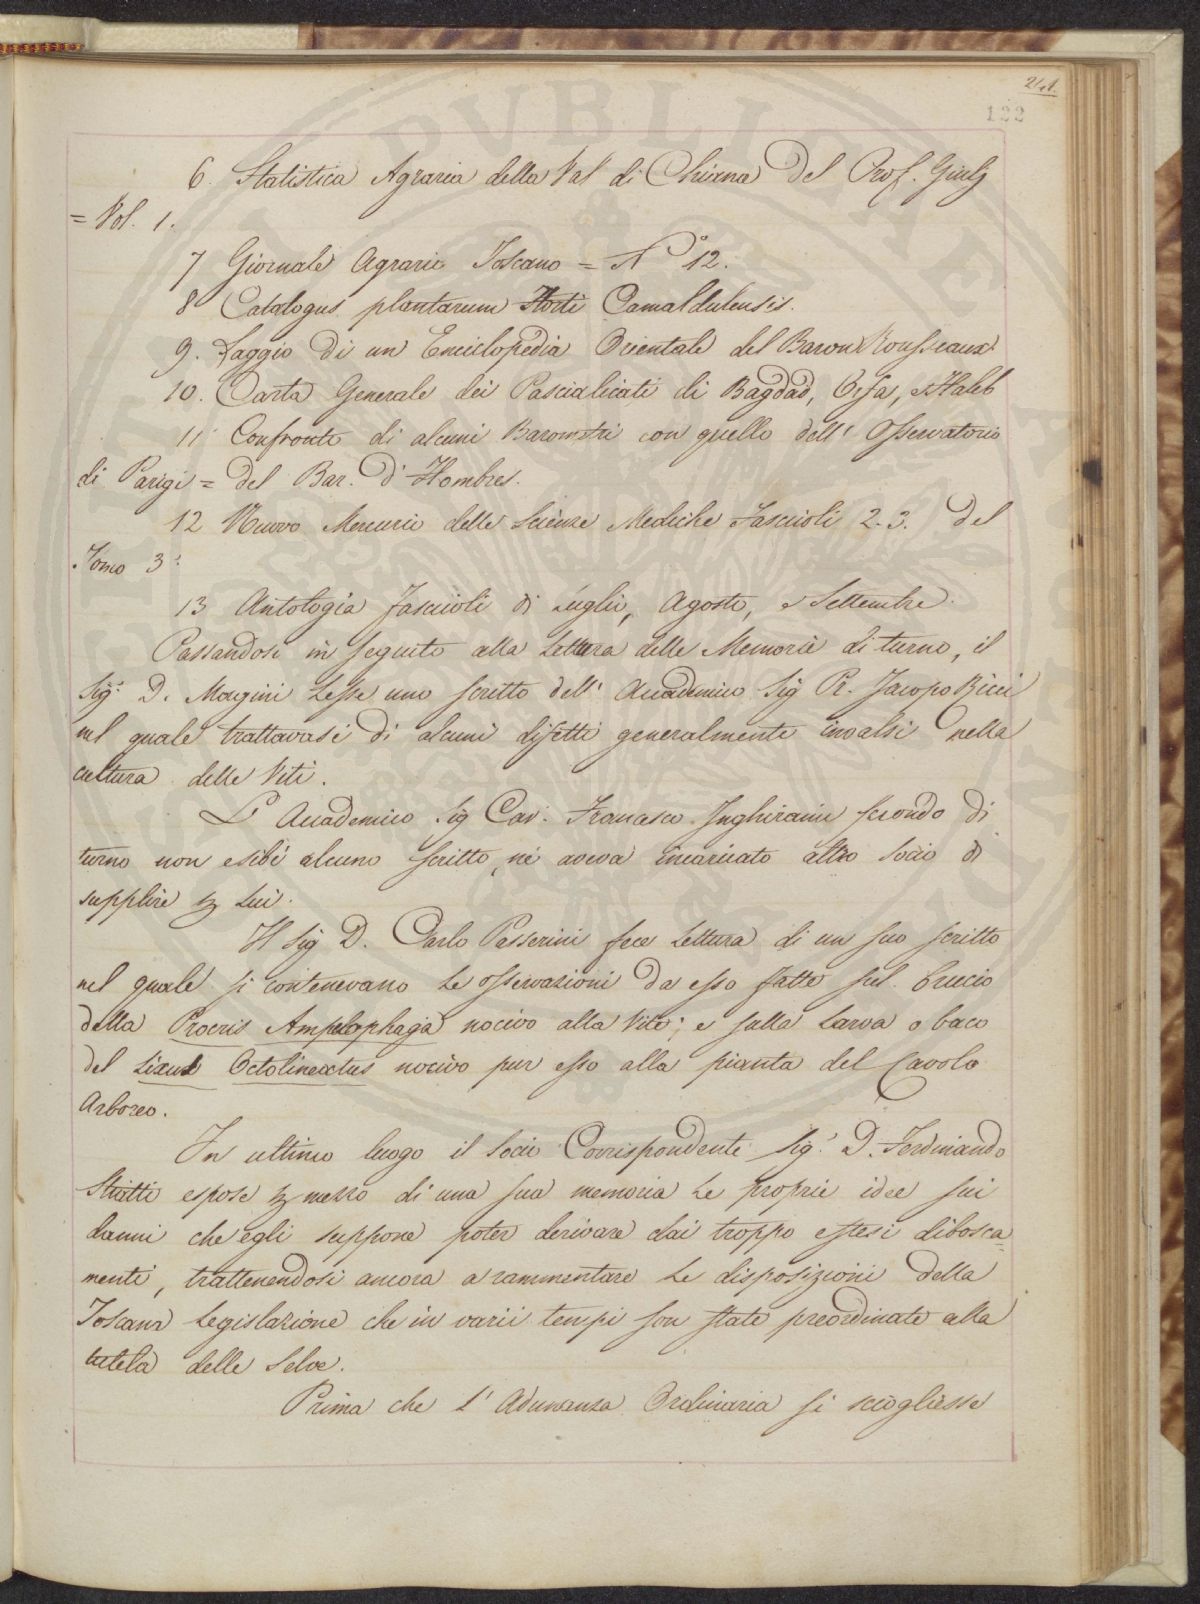 241.
122
6. Statistica Agraria della Val di Chiana Del Prof. Giulj
= Vol. 1.
7 Giornale Agrario Toscano = N.° 12.
8 Catalogus plantarum Horti Camaldulensis.
9. Saggio di un Enciclopedia Orientale del Baron Rousseaux
10. Carta Generale dei Pascialicati di Bagdad, Orfa, e Haleb
11 Confronto di alcuni Barometri con quello dell' Osservatorio
di Parigi = del Bar. D'Hombres.
12 Nuovo Mercurio delle Scienze Mediche Fascicoli 2. 3. del
Tomo 3°
13 Antologia Fascicoli di Luglio, Agosto, e Settembre.
Passandosi in seguito alla Lettura delle Memorie di turno, il
Sig. D. Lesse uno scritto dell' Accademico Sig P. Jacopo Ricci
nel quale trattavasi di alcuni difetti generalmente invalsi nella
cultura delle Viti.
L' Accademico Sig Cav. Francesco Inghirami secondo di
turno non esibì alcuno scritto, nè aveva incaricato altro Socio di
supplire per Lui.
Il Sig D. Carlo Passerini fece Lettura di un suo scritto
nel quale si contenevano Le osservazioni Da esso fatte sul Crucio
della Procris Ampelophaga nocivo alla Vite; e sulla Larva o baco
del Lixus Octolineatus nocivo pur esso alla pianta del Cavolo
Arboreo.
In ultimo luogo il Socio Corrispondente Sig. D. Ferdinando
espose per mezzo di una sua memoria Le proprie idee sui
danni che egli suppone poter derivare dai troppo estesi dibosca=
menti, trattenendosi ancora a rammentare Le disposizioni della
Toscana Legislazione che in varii tempi son state preordinate alla
tutela delle Selve.
Prima che L' Adunanza Ordinaria si sciogliesse